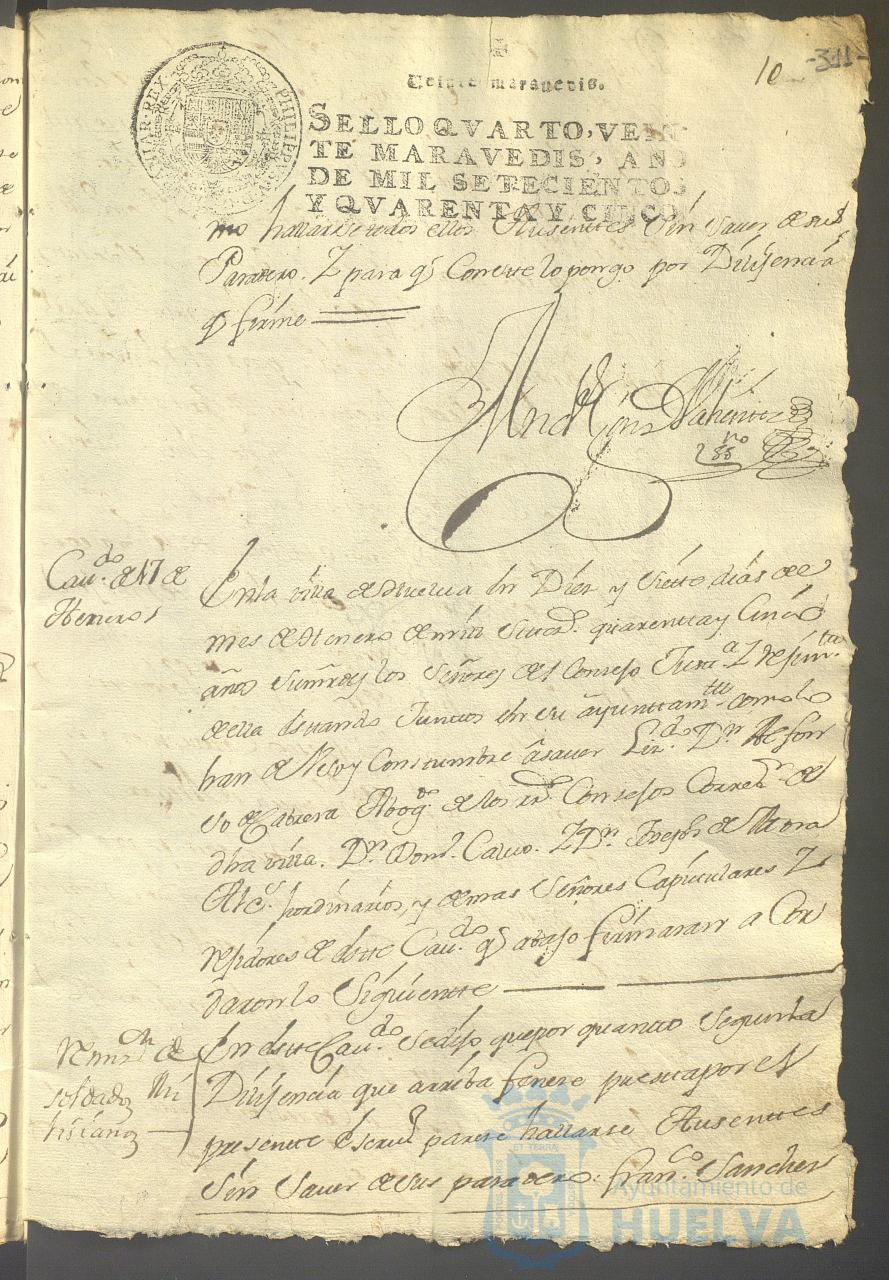 10 -311-
Veinte maravedis.
SELLO QVARTO, VEIN
TE MARAVEDIS, AÑO
DE MIL SETECIENTOS
Y QVARENTA Y CINCO.
PHILIPPVS V HISPANIAR REX
mo hallarse todos ellos Ausenttes sin saver de sus
Paradero. Y para q̃ Conste lo pongo por Dilijencia
q̃ firme
Cav.do de 17 de
Henero
En la villa de Huelva en Diez y Siette dias de
mes de Henero de mill settez.s quarentta y Cinco
años los Señores del Consejo Justt.a Y Rejim.tto
de ella estando Juntos en su ayunttam.tto como lo
han de Vsso y Constumbre asaver Liz.do D.n Alfon
so de Cabrera Abog.do de los R.s Consejos Correx.r de
dha villa. D.n Calvo. Y D.n Joseph de Mora
Alc.s hordinarios, y demas Señores Capitulares Y
rejidores de estte Cav.do q̃ abajo firmaran acor
daron lo Siguientte
soldados Mi
lisianos
En estte Cav.do se dijo que por quantto Segun la
Dilijencia que arriba puesta por el
presentte Escriv.o parese hallarse Ausenttes
sin saver de sus paradero. Fran.co Sanches
Ayuntamiento de
HUELVA